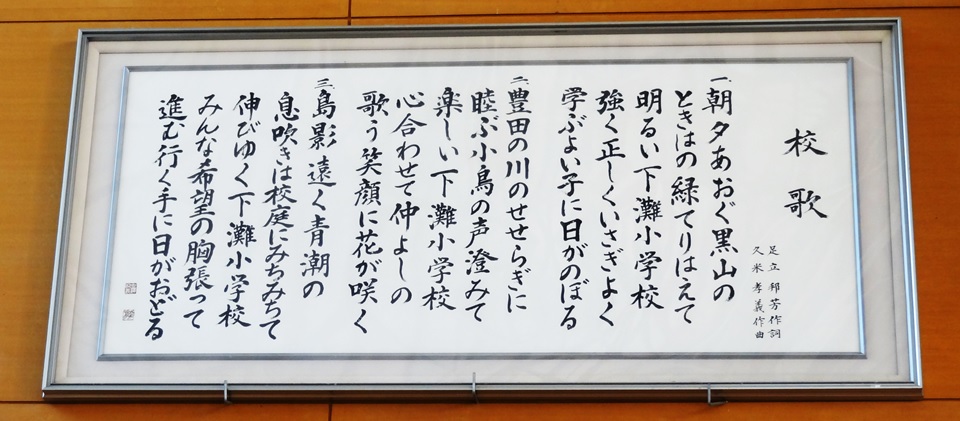 校歌
足立邦芳作詞
久米孝義作曲
一、朝夕あおぐ黒山の
ときはの緑てりはえて
明るい下灘小学校
強く正しくいさぎよく
学ぶよい子に日がのぼる
二、豊田の川のせせらぎに
睦ぶ小鳥の声澄みて
楽しい下灘小学校
心合わせて仲よしの
歌う笑顔に花が咲く
三、島影遠く青潮の
息吹きは校庭にみちみちて
伸びゆく下灘小学校
みんな希望の胸張って
進む行く手に日がおどる